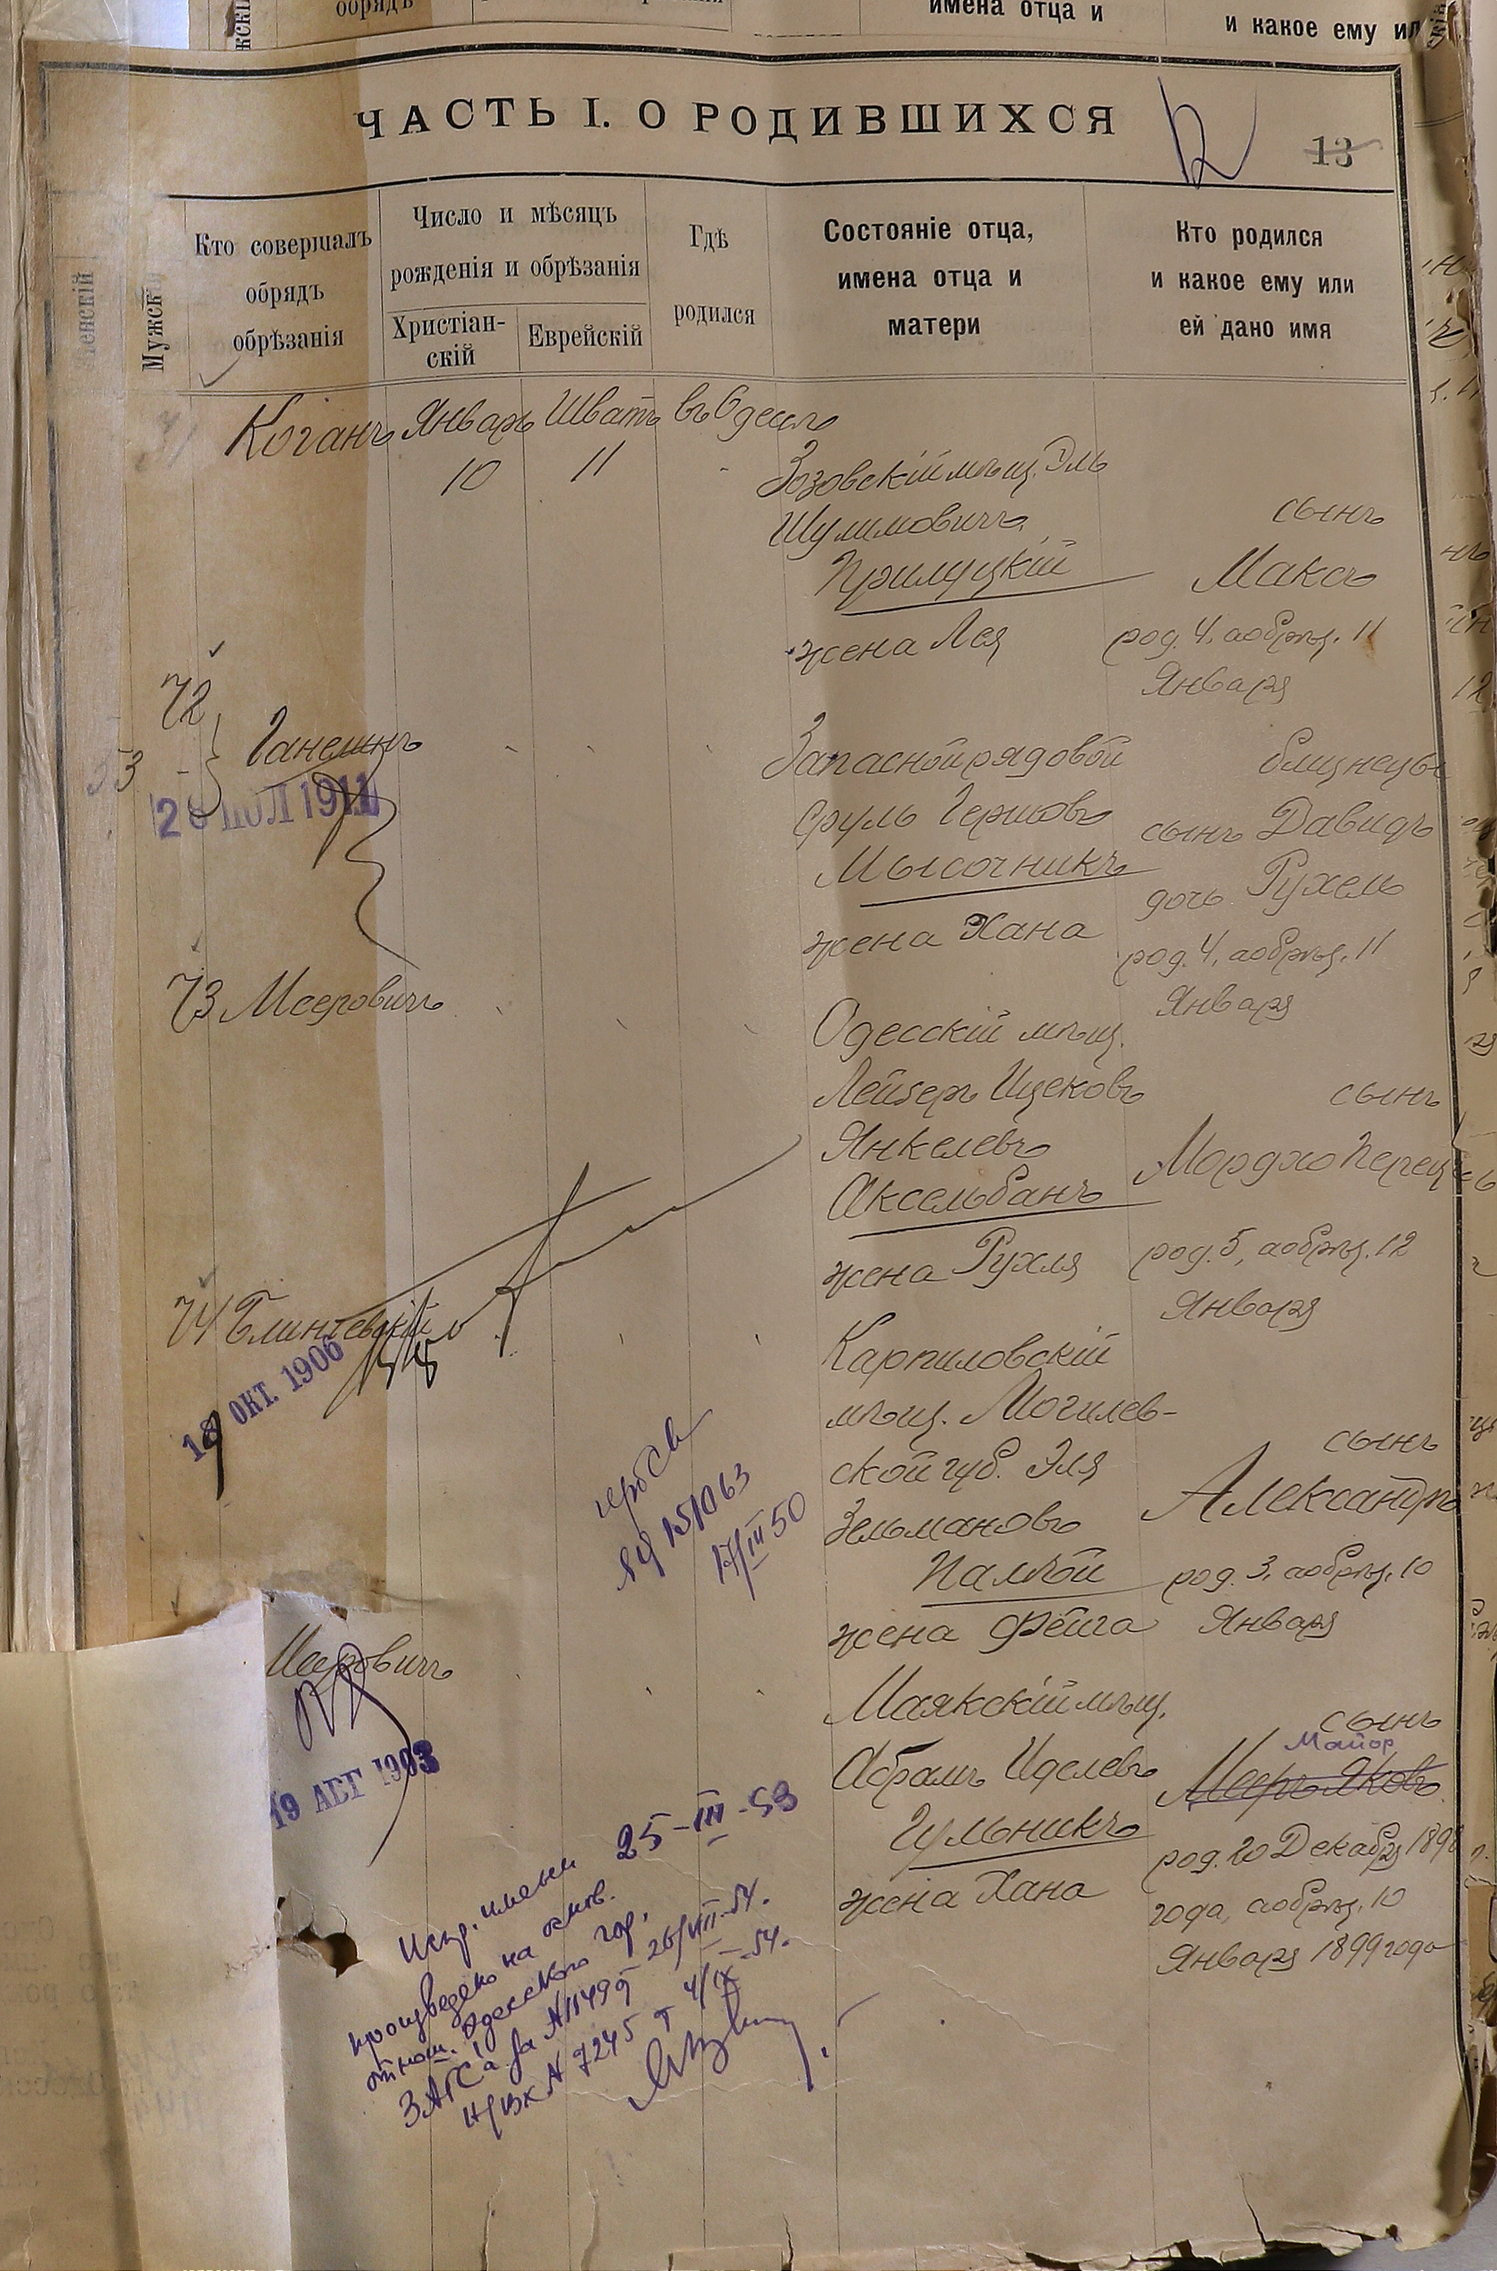 обрядъ
имена отца и
и какое ему ил
ЧАСТЬ I. О РОДИВШИХСЯ
13
Женскій
Мужск
Кто совершалъ
обрядъ
обрѣзанія
Число и мѣсяцъ
рожденія и обрѣзанія
Христіан-
скій
Еврейскій
Гдѣ
родился
Состояніе отца,
имена отца и
матери
Кто родился
и какое ему или
ей дано имя
Коганъ Январь Шватъ въ Одессѣ
10 11
Зозовскій мѣщ. Эль
Шулимовичъ
Прилуцкій
жена Лея
сынъ
Максъ
род. 4, а обрѣз. 11
Января
72
53
Ганешнъ
20 ІЮЛ 1911
Запасной рядовой
Сруль Гершовъ
Мысочникъ
жена Хана
близнецы
сынъ Давидъ
дочь Рухель
род. 4, а обрѣз. 11
Января
73 Мееровичъ
Одесскій мѣщ.
Лейзеръ Ицековъ
Янкелевъ
Аксельбанъ
жена Рухля
сынъ
Мордхо Перецъ
род. 5, а обрѣз. 12
Января
74
18 ОКТ. 1906
Карпиловскій
мѣщ. Могилев-
ской губ. Эля
Зельмановъ
Палѣй
жена Фейга
сынъ
Александръ
род. 3, а обрѣз. 10
Января
151063
17/III 50
Мееровичъ
19 АВГ 1903
Маякскій мѣщ.
Абрамъ Иделевъ
Гульникъ
жена Хана
сынъ
Майор
Мееръ Яковъ
род. 20 Декабря 1898
года, а обрѣз. 10
Января 1899 года
25-III-53
Испр. имени
произведено на основ.
отнош. Одесского гор.
ЗАГС'а за N 11499 26/VIII-54.
N 7245 от 4/IX-54.